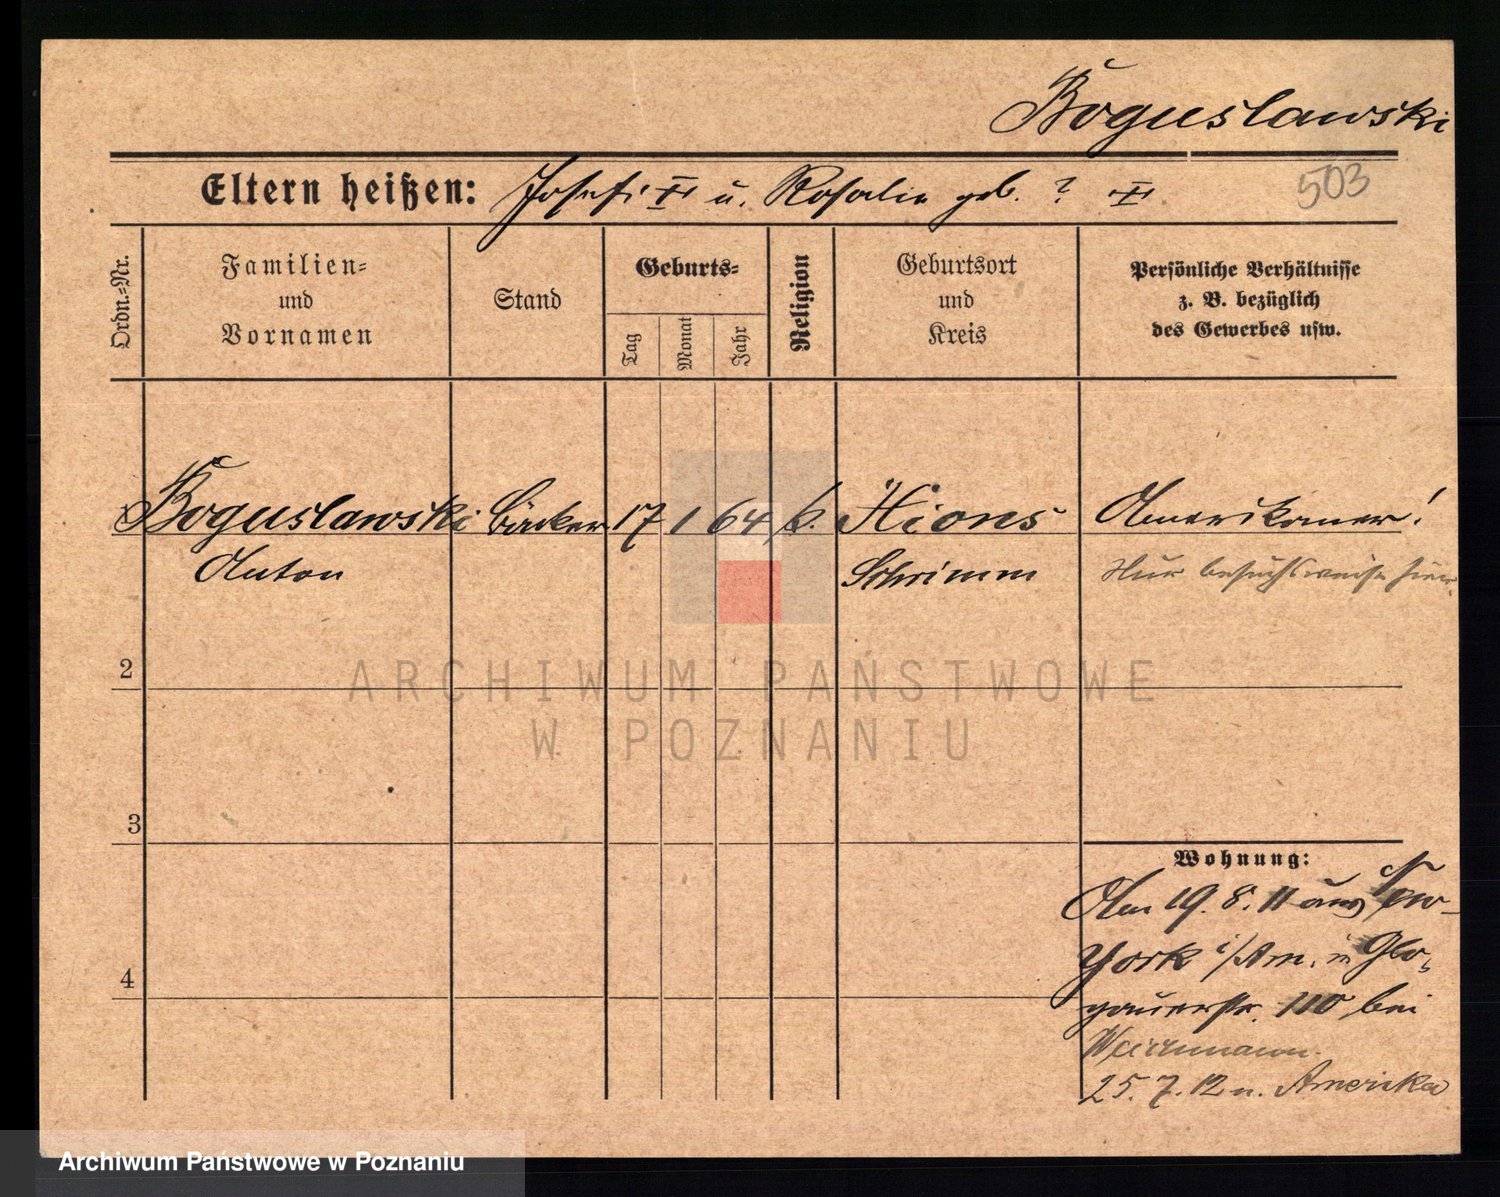 Boguslawski
Eltern heißen: Josef ✝ u. Rosalie geb. ? ✝
503
Ordn.=Nr.
Familien=
und
Vornamen
Stand
Geburts=
Tag
Monat
Jahr
Religion
Geburtsort
und
Kreis
Persönliche Verhältnisse
z. B. bezüglich
des Gewerbes usw.
Boguslawski Bäcker 17 1 64 k. Xions Amerikaner!
Anton Schrimm Nur besuchsweise hier.
2
ARCHIWUM PAŃSTWOWE
W POZNANIU
3
Wohnung:
Am 19. 8. 11 aus New-
York i/Am. n Glo-
gauerstr. 110 bei
4
25. 7. 12 n. Amerika
Archiwum Państwowe w Poznaniu